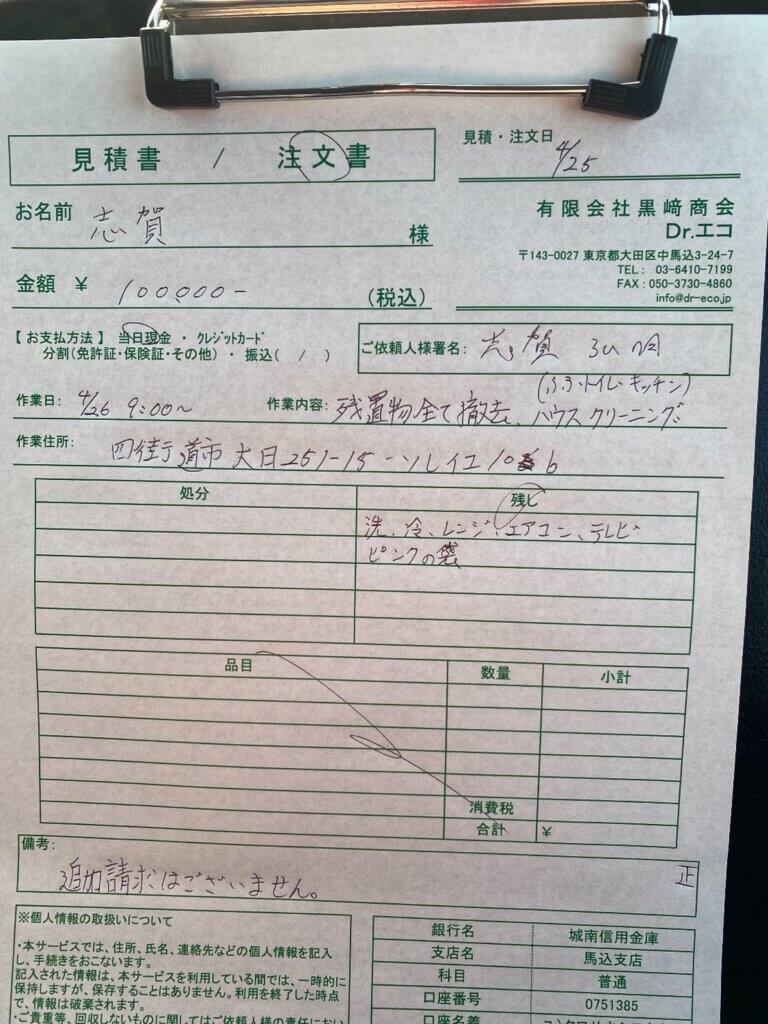 見積書 / 注文書
見積・注文日
4/25
お名前 志賀 様
有限会社黒﨑商会
Dr.エコ
〒143-0027 東京都大田区中馬込3-24-7
TEL: 03-6410-7199
FAX:050-3730-4860
info@dr-eco.jp
金額 ¥ 100,000- (税込)
【お支払方法】 当日現金 ・ クレジットカード
分割(免許証・保険証・その他) ・ 振込( / )
ご依頼人様署名: 志賀
(ふろ・トイレ・キッチン)
作業日: 4/26 9:00~ 作業内容: 残置物全て撤去、ハウスクリーニング
作業住所: 四街道市大日251-15-ソレイユ10 6
処分 残し
洗、冷、レンジ、エアコン、テレビ
ピンクの袋
品目 数量 小計
消費税
合計 ¥
備考:
追加請求はございません。
正
※個人情報の取扱いについて
・本サービスでは、住所、氏名、連絡先などの個人情報を記入
し、手続きをおこないます。
記入された情報は、本サービスを利用している間では、一時的に
保持しますが、保存することはありません。利用を終了した時点
で、情報は破棄されます。
・ご貴重等、回収しないものに関してはご依頼人様の責任におい
銀行名 城南信用金庫
支店名 馬込支店
科目 普通
口座番号 0751385
口座名義